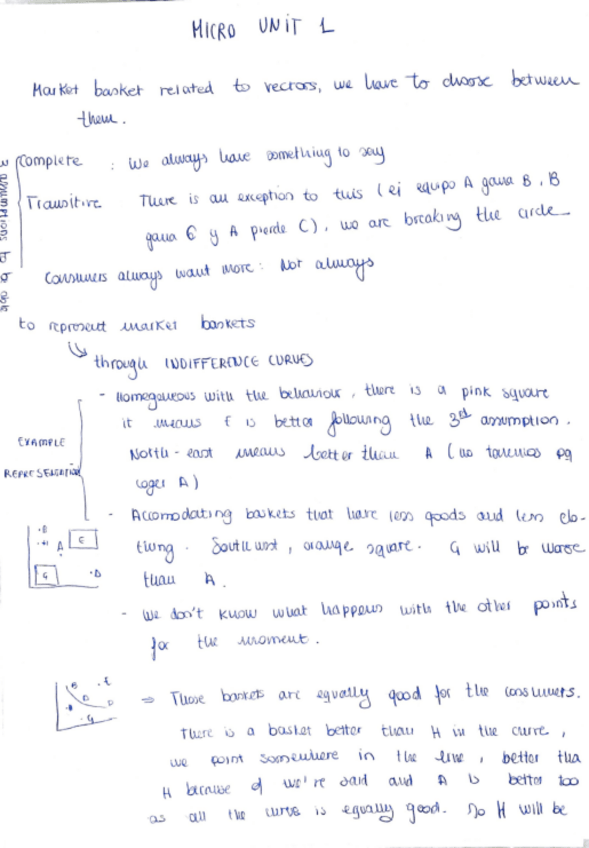 MICRO UNIT 1
Market basket related to vectors, we have to choose between
them.
Complete : We always have something to say
Transitive There is an exception to this (ei equipo A gana B, B
gana C y A pierde C), we are breaking the circle
Consumers always want more: Not always
assumptions to be able
to represent market baskets
through INDIFFERENCE CURVES
EXAMPLE
REPRESENTATION
- Homogeneous with the behaviour, there is a pink square
it means E is better following the 3rd assumption.
North-east means better than A (no tenemos pq
coger A)
- Accomodating baskets that have less goods and less clo-
thing. South west, orange square. G will be worse
than A.
B
H A E
G D
- We don't know what happens with the other points
for the moment.
B E
G
⇒ Those baskets are equally good for the consumers.
There is a basket better than H in the curve,
we point somewhere in the line, better tha
H because of we're said and A is better too
as all the curve is equally good. So H will be